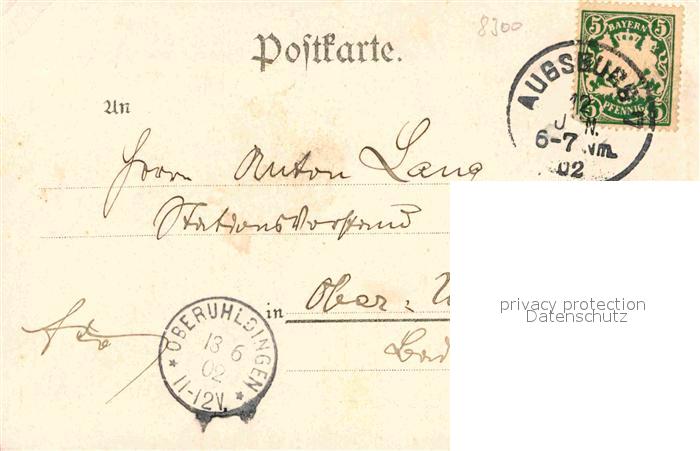 8300
5 BAYERN 5
5 PFENNIG 5
Postkarte.
AUGSBURG
12
JUN.
6-7 Nm.
02
An
Herrn Anton Lang
Stationsvorstand
in Ober-
Bad
frdo
OBERUHLDINGEN
13 6
02
11-12V.
privacy protection
Datenschutz